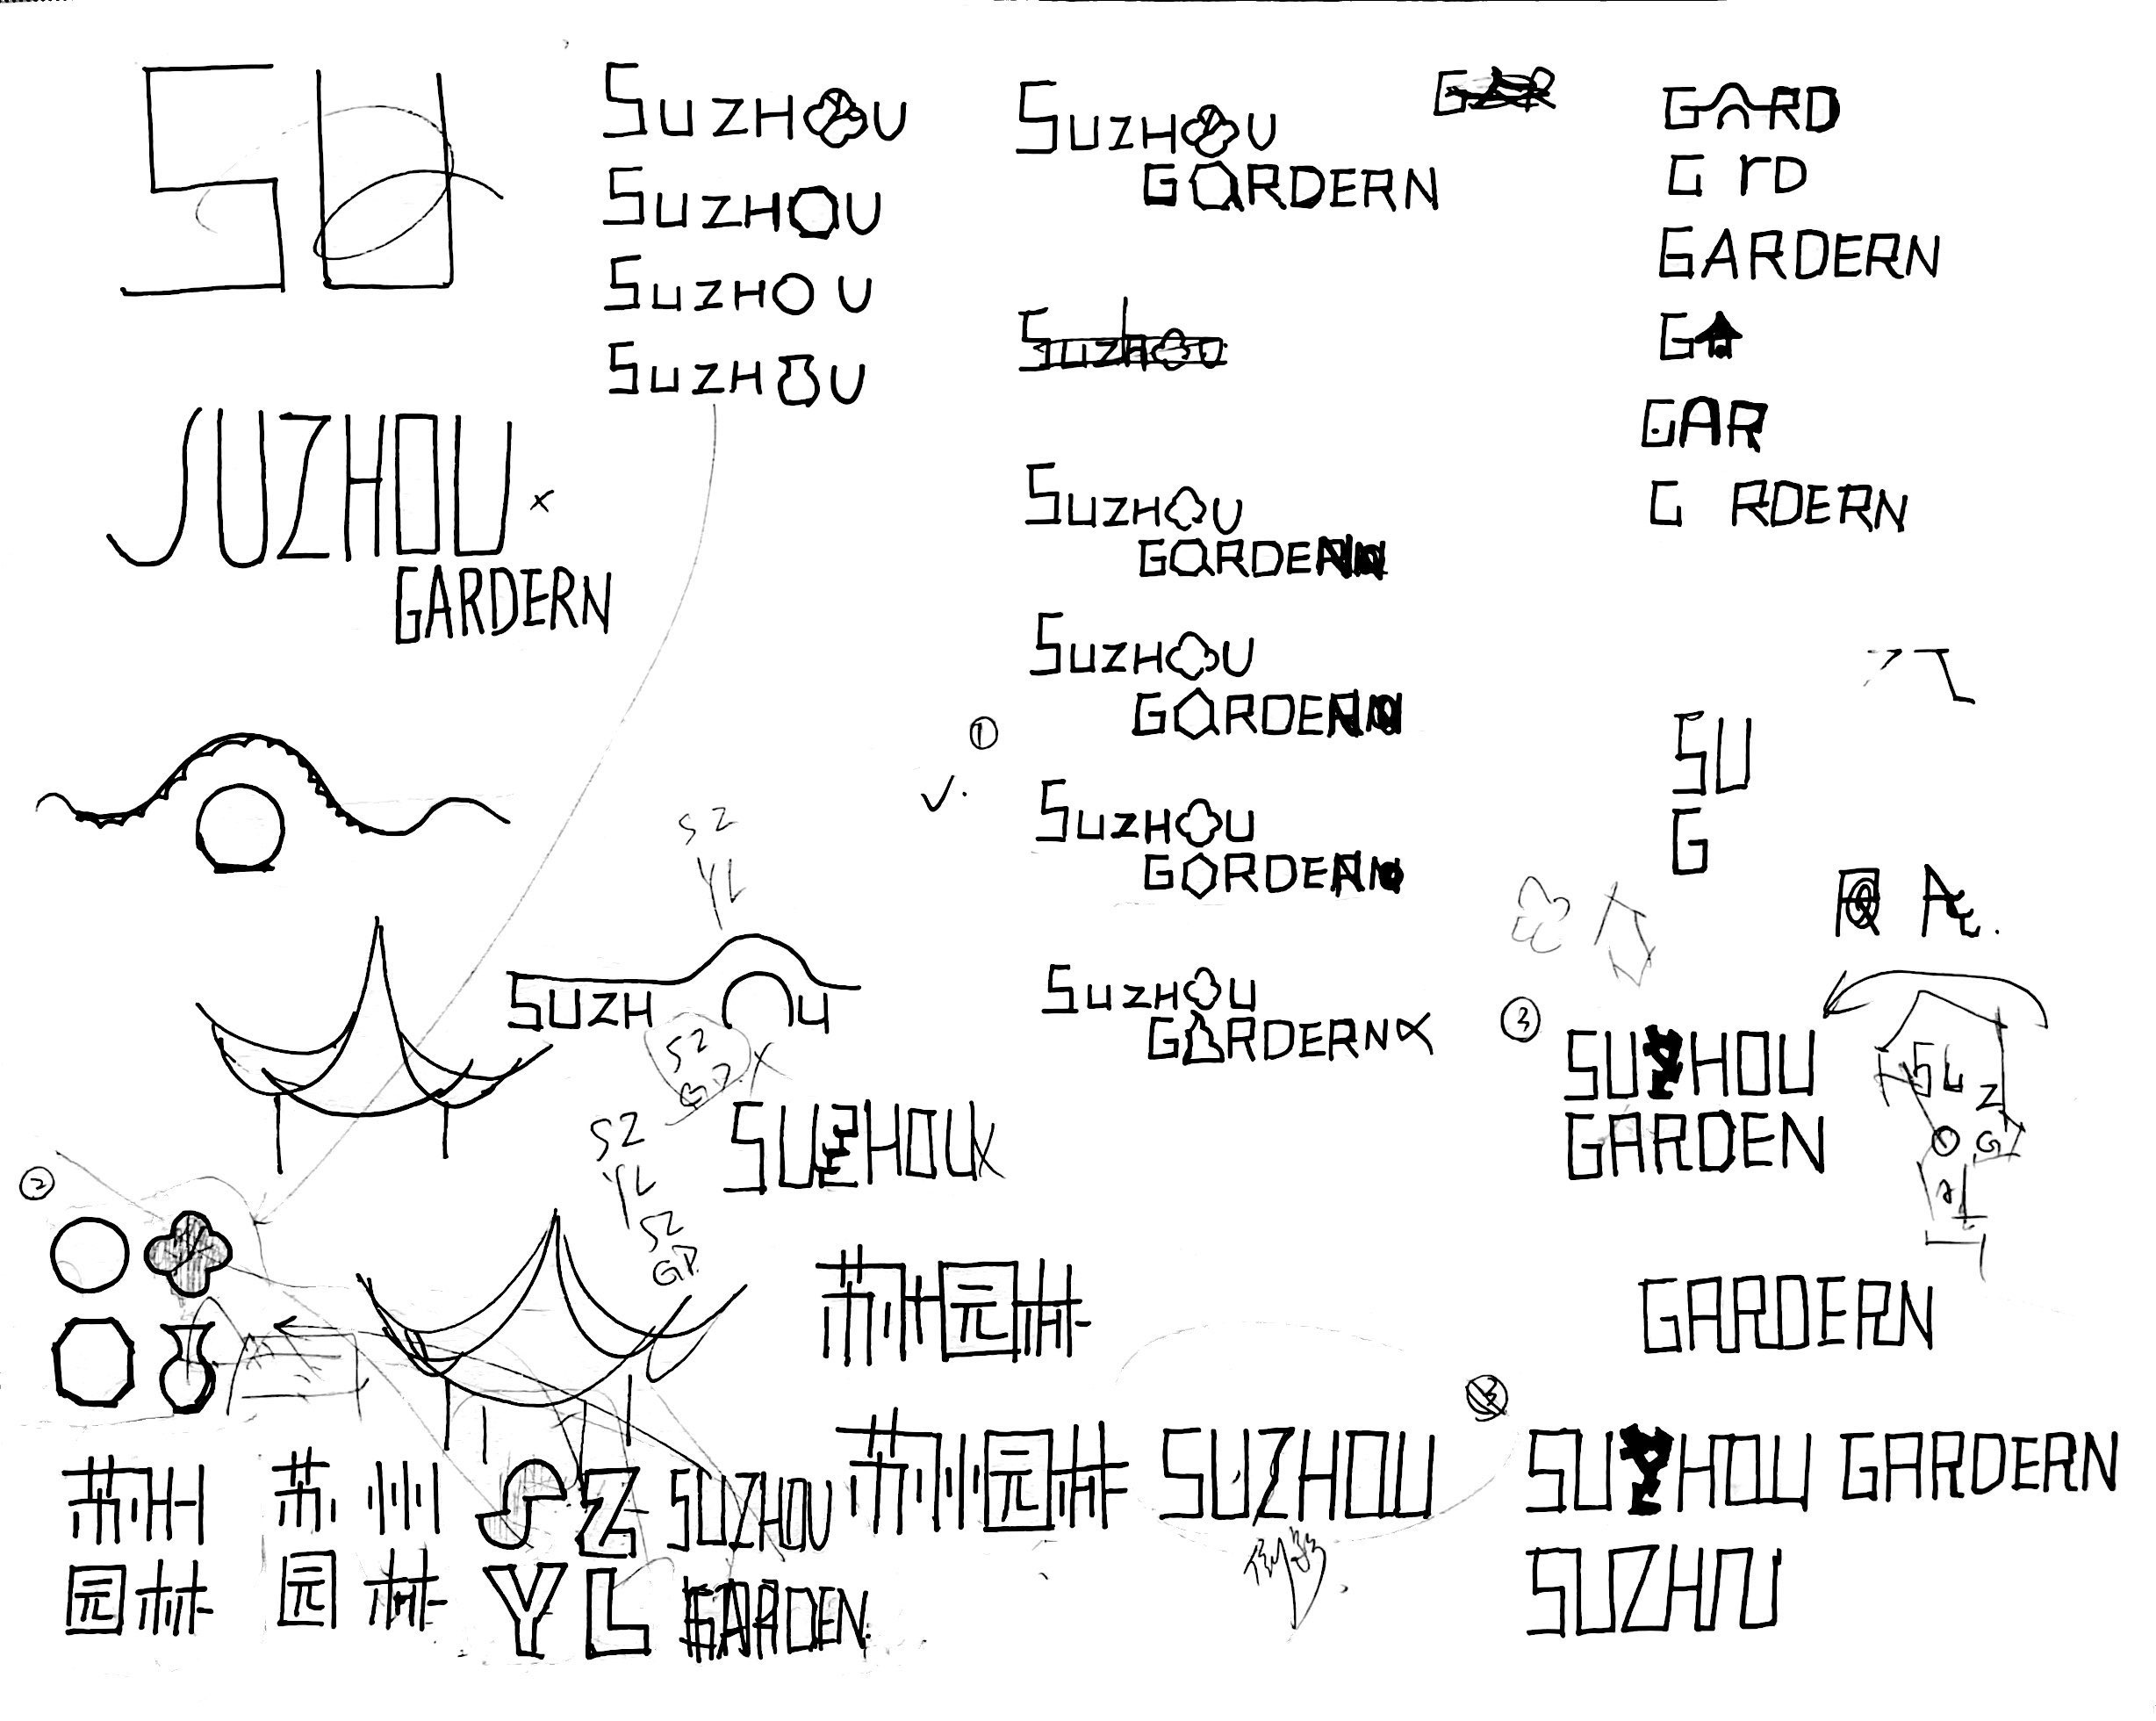 SU
SUZHOU
SUZHOU
SUZHOU
SUZHOU
SUZHOU
GARDERN
SUZHOU
GARDERN
G
GARD
G rD
GARDERN
G
GAR
G RDERN
Suzhou
SUZHOU
GARDE
①
SUZHOU
GARDE
SUZHOU
GARDE
SUZHOU
GARDERN
SU
G
SZ
YL
SUZH U
SZ
G.D.
SUZHOU
SZ
YL
SZ
GD.
③
SUZHOU
GARDEN
②
苏州园林
GARDERN
苏州
园林
苏州
园林
SZ
YL
SUZHOU
GARDEN
苏州园林
SUZHOU
倒影
SUZHOU GARDERN
SUZHOU